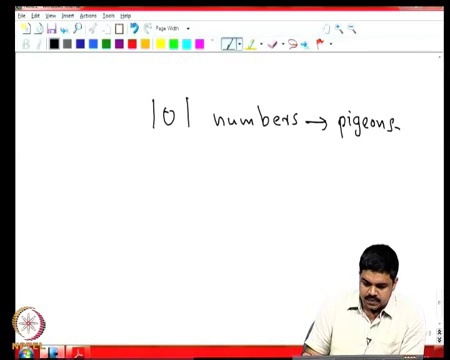 File Edit View Insert Actions Tools Help
Page Width
101 numbers → pigeons
NPTEL